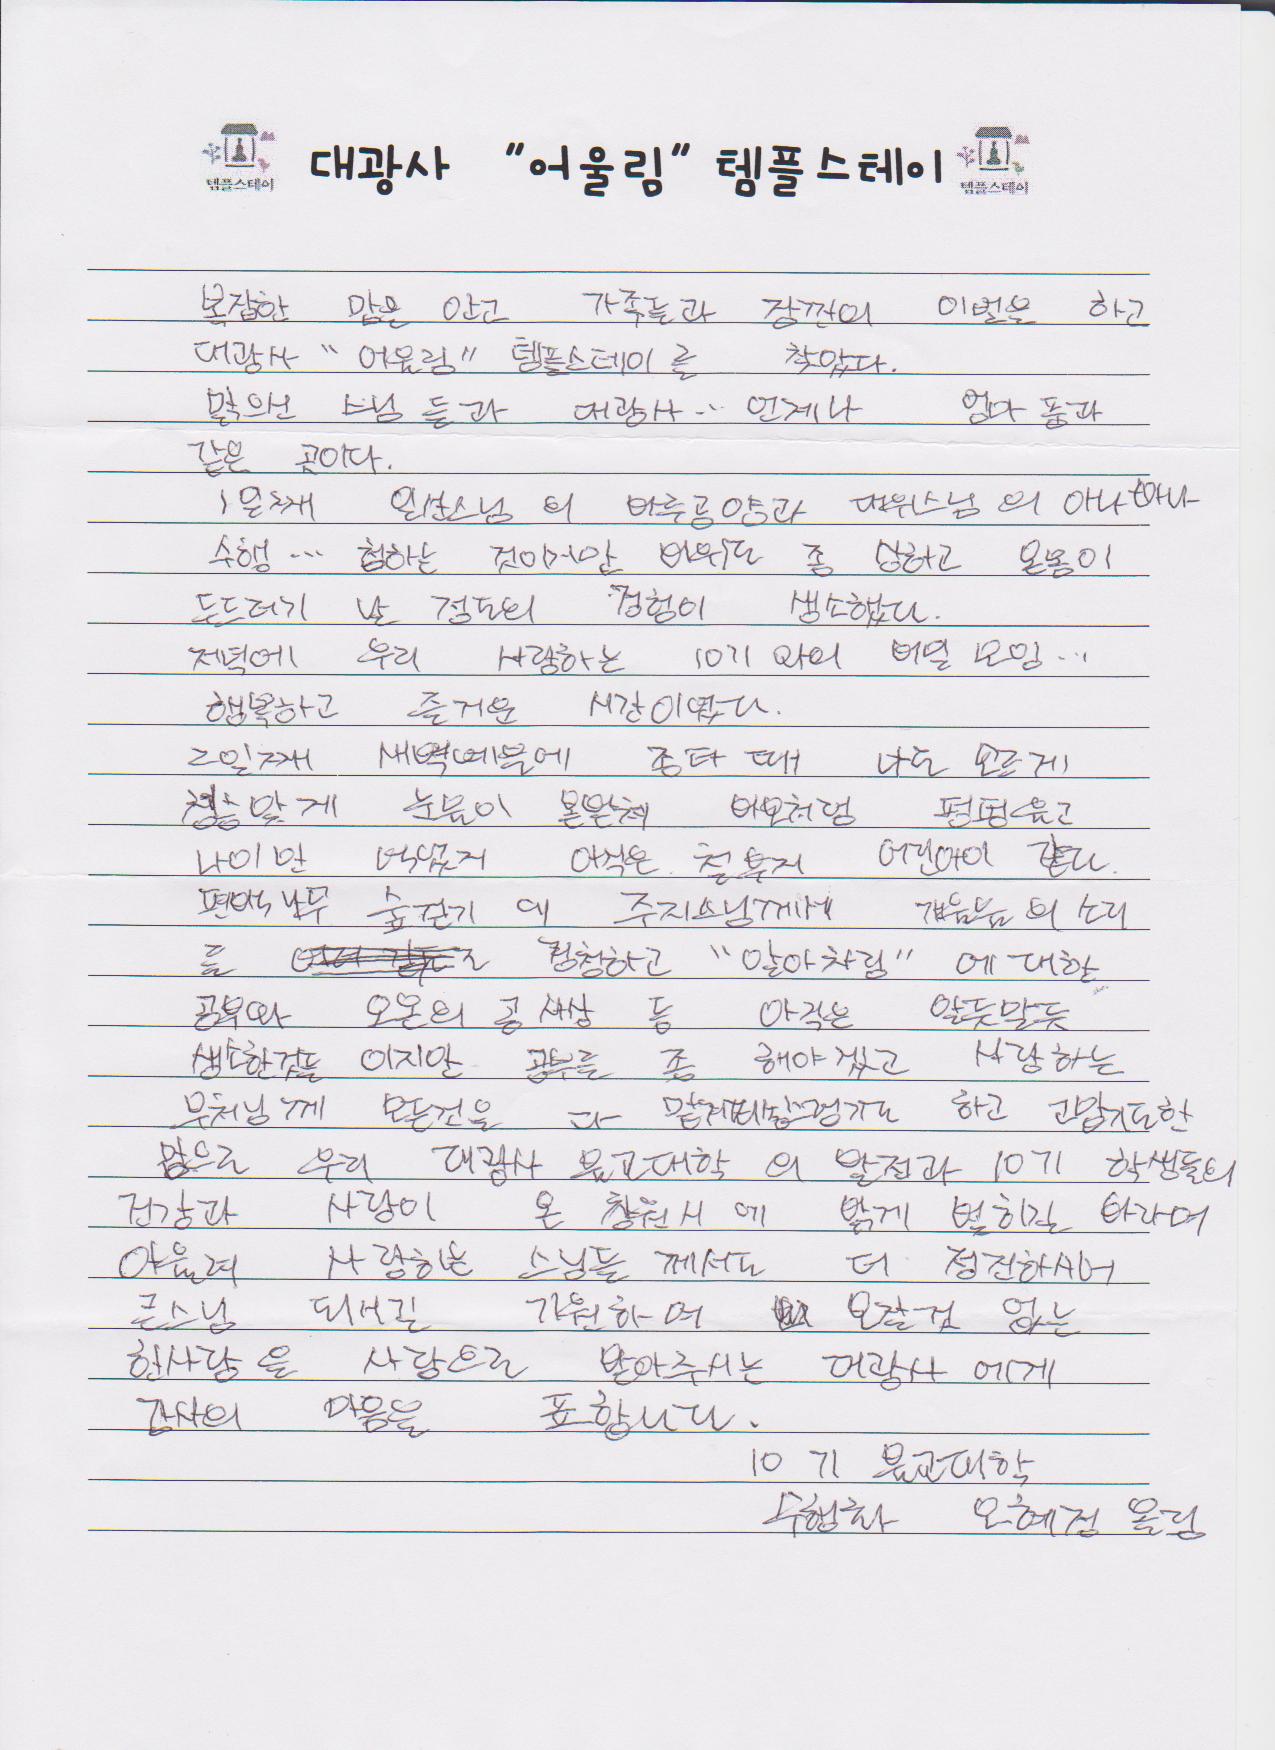 템플스테이 대광사 "어울림" 템플스테이 템플스테이
복잡한 맘을 안고 가족들과 잠깐의 이별을 하고
대광사 "어울림" 템플스테이를 찾았다.
스님들과 대광사... 언제나 엄마 품과
같은 곳이다.
1일째 스님의 바루공양과 스님의 아나바나
수행... 험하는 것이지만 비위도 좀 상하고 온몸이
두드러기 날 정도의 경험이 생소했다.
저녁에 우리 사랑하는 10기와의 모임...
행복하고 즐거운 시간이였다.
2일째 새벽예불에 종타 때 나도 모르게
눈물이 바보처럼 펑펑울고
나이만 먹었지 아직은 철부지 어린아이 같다.
편백나무 숲걷기에 주지스님께서 의 소리
를 경청하고 "알아차림"에 대한
공부와 오온의 공 세상 등 아직은 알듯말듯
생소한것들이지만 공부를 좀 해야겠고 사랑하는
부처님께 모든것을 다 하고
맘으로 우리 대광사 불교대학의 발전과 10기 학생들의
건강과 사랑이 온 창원시에 밝게 바라며
아울려 사랑하는 스님들께서도 더 정진하시어
큰스님 되시길 기원하며 보잘것 없는
한사람을 사랑으로 받아주시는 대광사에게
감사의 마음을 표합니다.
10기 불교대학
수행화 오혜정 올림